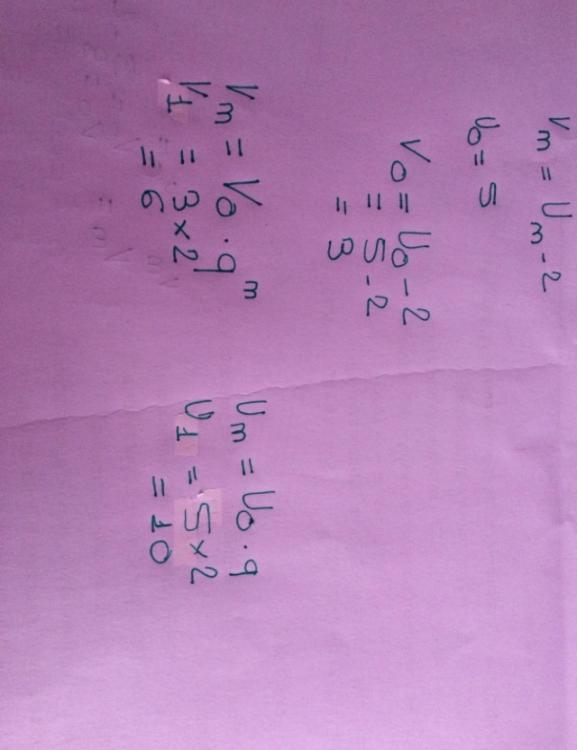 Vm = Um - 2
U0 = 5
V0 = U0 - 2
= 5 - 2
= 3
Vm = V0 · q^m
V1 = 3 × 2
= 6
Um = U0 · q
U1 = 5 × 2
= 10